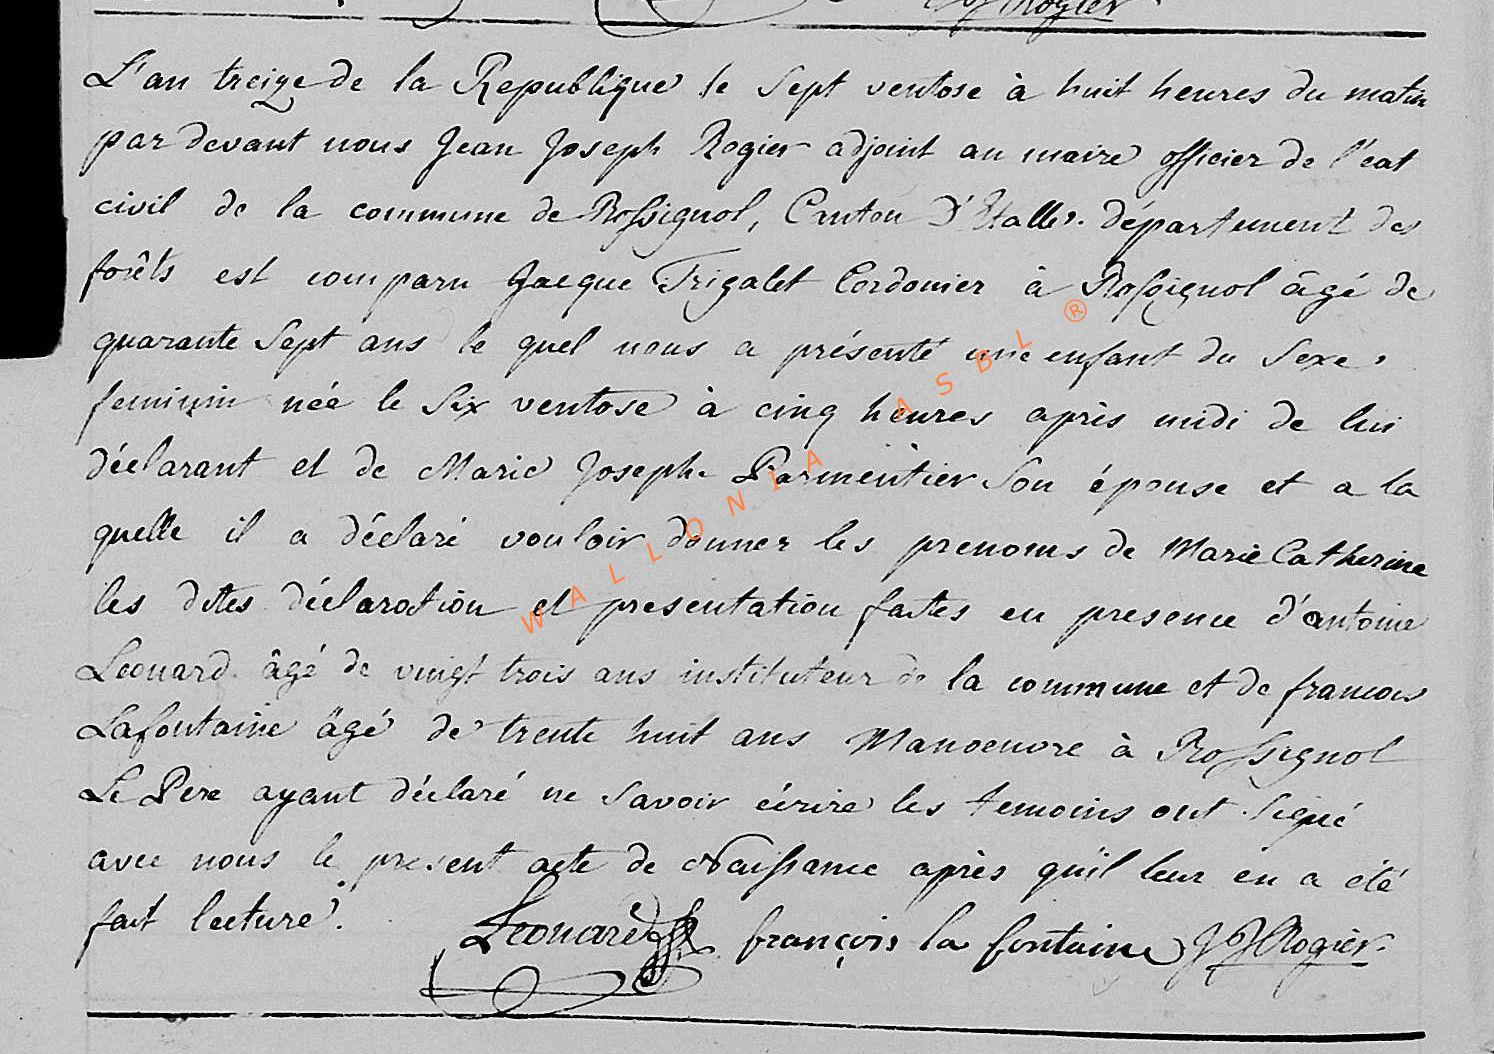 J J Rogier
L'an treize de la Republique le Sept ventose à huit heures du matin
par devant nous Jean Joseph Rogier adjoint au maire officier de l'eat
civil de la commune de Rossignol, Canton D'Etalle. département des
forêts est comparu Jacque Trigalet Cordonier à Rossignol âgé de
quarante Sept ans le quel nous a présenté une enfant du Sexe
feminin née le Six ventose à cinq heures après midi de lui
déclarant et de Marie Joseph Parmentier Son épouse et a la
quelle il a déclaré vouloir donner les prenoms de Marie Catherine
les dites déclaration et presentation faites en presence d'antoine
Leonard âgé de vingt trois ans instituteur de la commune et de francois
Lafontaine âgé de trente huit ans Manoeuvre à Rossignol
Le Pere ayant déclaré ne Savoir écrire les temoins ont Signé
avec nous le present acte de Naissance après qu'il leur en a été
fait lecture.
Leonard françois la fontaine J J Rogier
WALLONIA ASBL ®